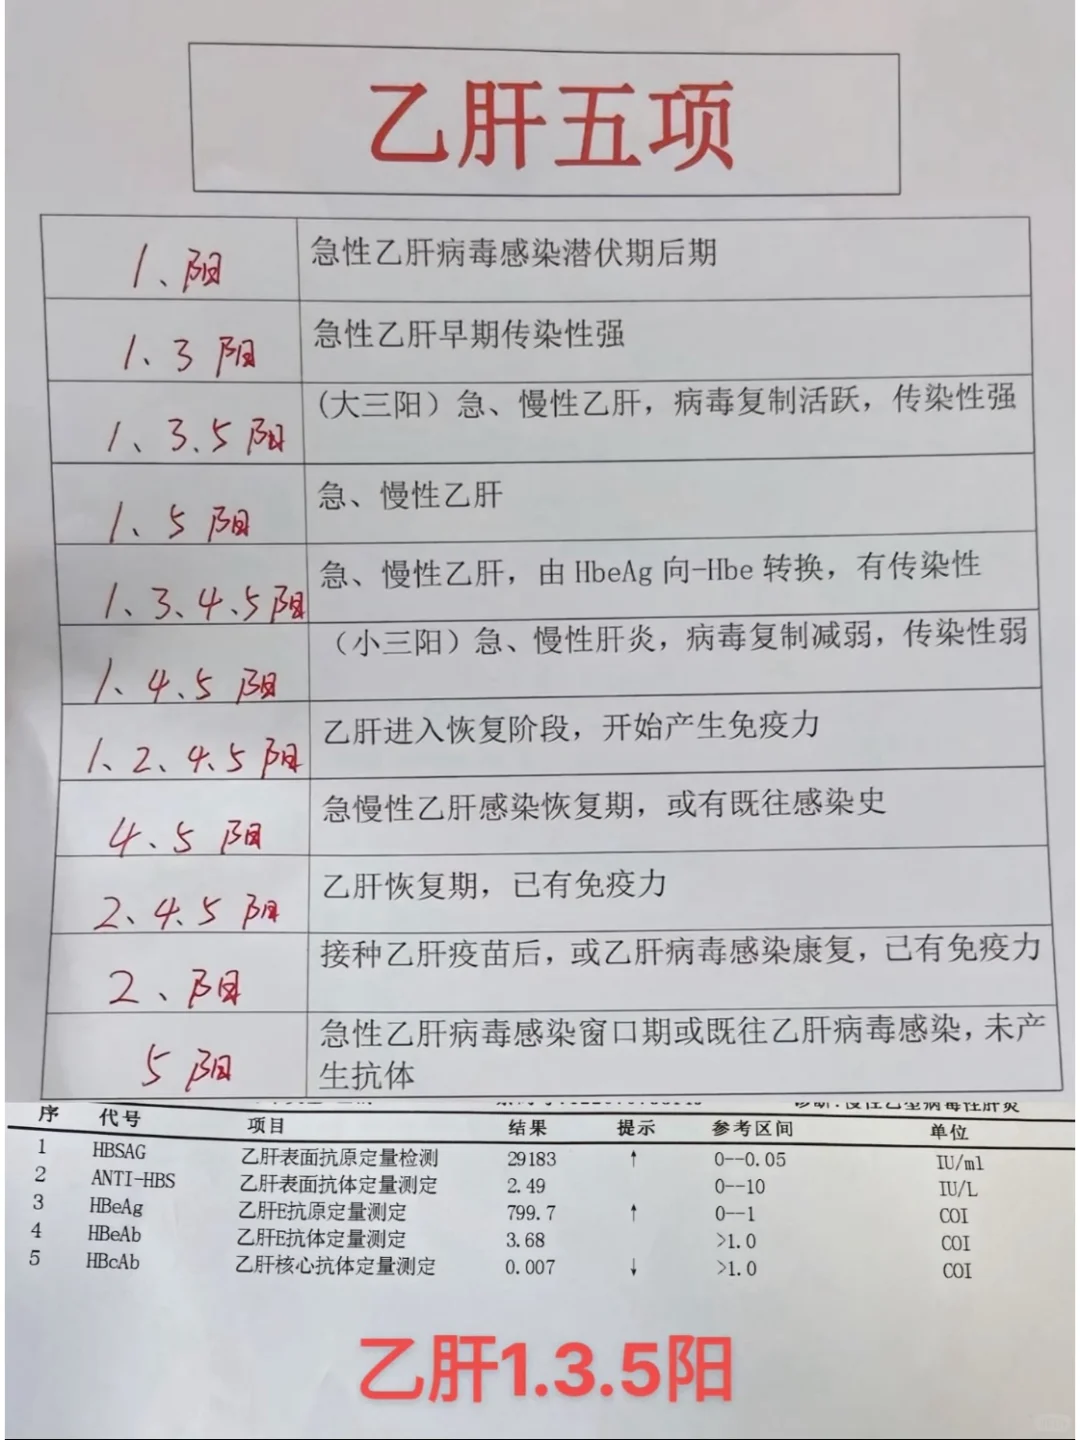 乙肝五项
1、阳
急性乙肝病毒感染潜伏期后期
1、3 阳
急性乙肝早期传染性强
1、3、5 阳
(大三阳）急、慢性乙肝，病毒复制活跃，传染性强
1、5 阳
急、慢性乙肝
1、3、4、5 阳
急、慢性乙肝，由 HbeAg 向-Hbe 转换，有传染性
1、4、5 阳
（小三阳）急、慢性肝炎，病毒复制减弱，传染性弱
1、2、4、5 阳
乙肝进入恢复阶段，开始产生免疫力
4、5 阳
急慢性乙肝感染恢复期，或有既往感染史
2、4、5 阳
乙肝恢复期，已有免疫力
2、阳
接种乙肝疫苗后，或乙肝病毒感染康复，已有免疫力
5 阳
急性乙肝病毒感染窗口期或既往乙肝病毒感染，未产
生抗体
诊断:慢性乙型病毒性肝炎
序 代号 项目 结果 提示 参考区间 单位
1 HBSAG 乙肝表面抗原定量检测 29183 ↑ 0--0.05 IU/ml
2 ANTI-HBS 乙肝表面抗体定量测定 2.49 0--10 IU/L
3 HBeAg 乙肝E抗原定量测定 799.7 ↑ 0--1 COI
4 HBeAb 乙肝E抗体定量测定 3.68 >1.0 COI
5 HBcAb 乙肝核心抗体定量测定 0.007 ↓ >1.0 COI
乙肝1.3.5阳